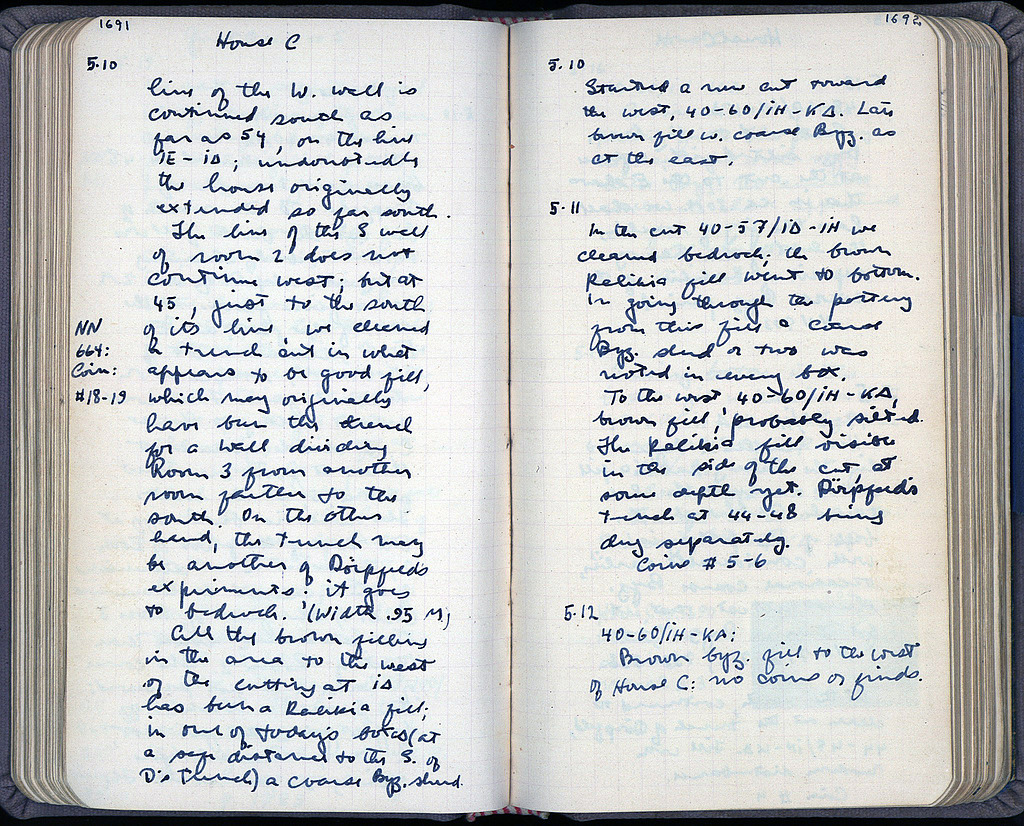 1691
House C
5.10
line of the W. wall is
continued south as
far as 54, on the line
ΙΕ-ΙΔ; undoubtedly
the house originally
extended so far south.
The line of the S wall
of room 2 does not
continue west; but at
45, just to the south
of its line we cleared
a trench cut in what
appears to be good fill,
which may originally
have been the trench
for a wall dividing
Room 3 from another
room farther to the
south. On the other
hand, the trench may
be another of Dörpfeld's
experiments: it goes
to bedrock. (Width .95 M.)
All the brown filling
in the area to the west
of the cutting at ΙΔ
has been a Relikia fill;
in one of today's boxes (at
a safe distance to the S. of
D's trench) a coarse Byz. sherd
NN
664:
Coin:
#18-19
1692
5.10
Started a new cut toward
the west, 40-60/ΙΗ-ΚΔ. Late
brown fill w. coarse Byz. as
at the east.
5.11
In the cut 40-57/ΙΔ-ΙΗ we
cleared bedrock; the brown
Relikia fill went to bottom.
In going through the pottery
from this fill a coarse
Byz. sherd or two was
noted in every box.
To the west 40-60/ΙΗ-ΚΔ,
brown fill, probably silted.
The Relikia fill visible
in the side of the cut, at
some depth yet. Dörpfeld's
trench at 44-48 being
dug separately.
Coins #5-6
5.12
40-60/ΙΗ-ΚΔ:
Brown byz. fill to the west
of House C: no coins or finds.